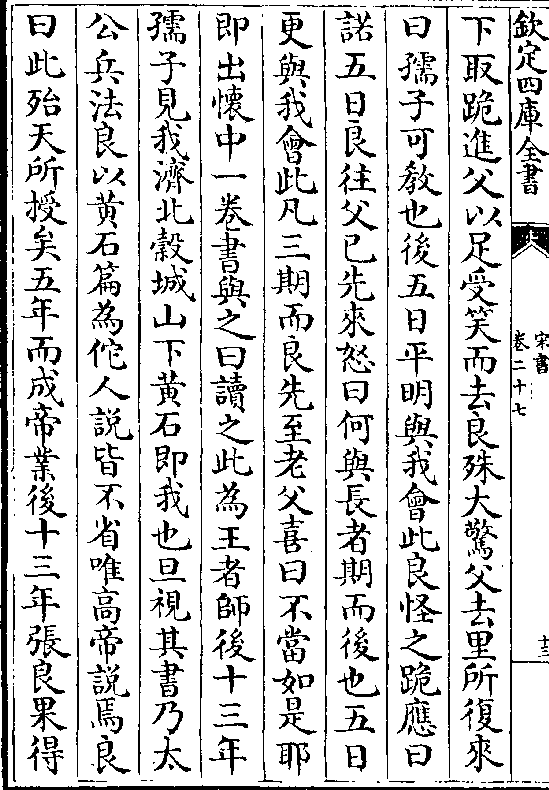 欽定四庫全書
宋書
卷二十七
十三
下取跪進父以足受笑而去良殊大驚父去里所復來
曰孺子可教也後五日平明與我會此良怪之跪應曰
諾五日良往父已先來怒曰何與長者期而後也五日
更與我會此凡三期而良先至老父喜曰不當如是耶
即出懷中一卷書與之曰讀之此為王者師後十三年
孺子見我濟北穀城山下黄石即我也旦視其書乃太
公兵法良以黄石篇為佗人説皆不省唯高帝説焉良
曰此殆天所授矣五年而成帝業後十三年張良果得